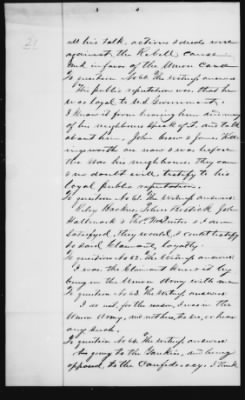 all his talk, actions & deeds were
against the Rebell cause
and in favor of the Union Cause
To question No 60. The witness answers
The public reputation was that he
was loyal to U.S. Government,
I know it from hearing
of his neighbours speak of it and talk
about him, John
before
the War his neighbours, they can
& no doubt will testify to his
loyal public reputation.
To question No 61. The witness answers
Riley Haskins, John
Hallmark & Thos. I am
satisfied, they would, & could testify
to said Claimant, loyalty
To question No 62. The witness answers
I was, the Claimant knew it by
being in the Union Army with me
To question No 63. The witness answers
I do not for the reason, I was in the
Union Army, and not here, to see, or hear
any such.
To question No 64. The witness answers
by going to the Yankies, and being
opposed, to the Confederacy. I think